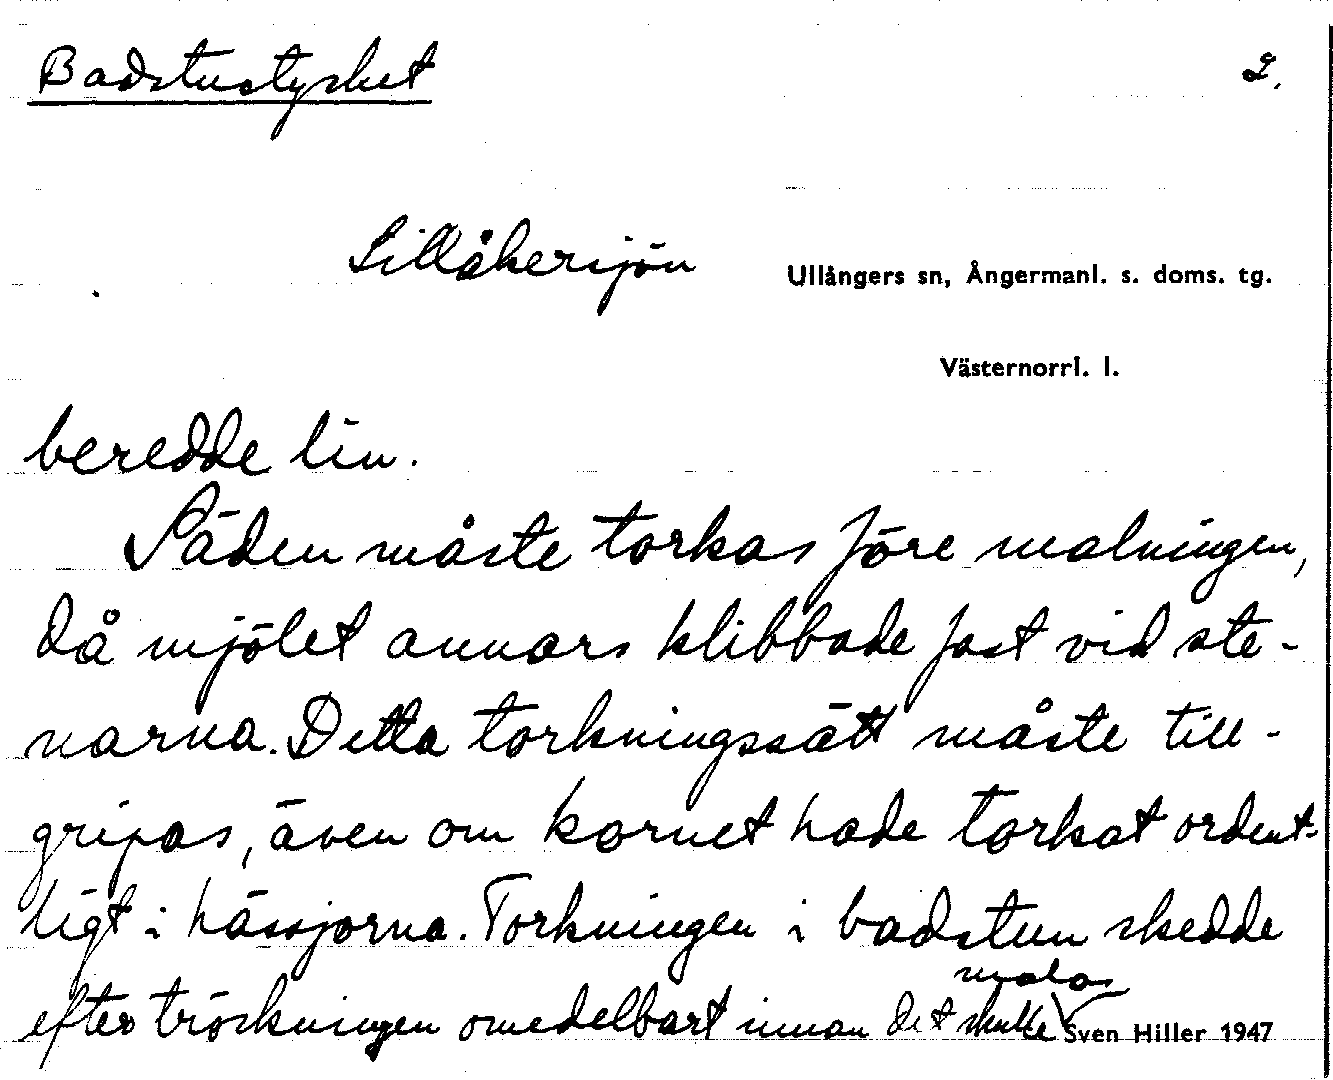 Badstustycket 2.
Lillåkersjön Ullångers sn, Ångermanl. s. doms. tg.
Västernorrl. l.
beredde lin.
Säden måste torkas före malningen,
då mjölet annars klibbade fast vid ste-
narna. Detta torkningssätt måste till-
gripas, även om kornet hade torkat ordent-
ligt i hässjorna. Torkningen i badstun skedde
malas
efter tröskningen omedelbart innan det skulle Sven Hiller 1947